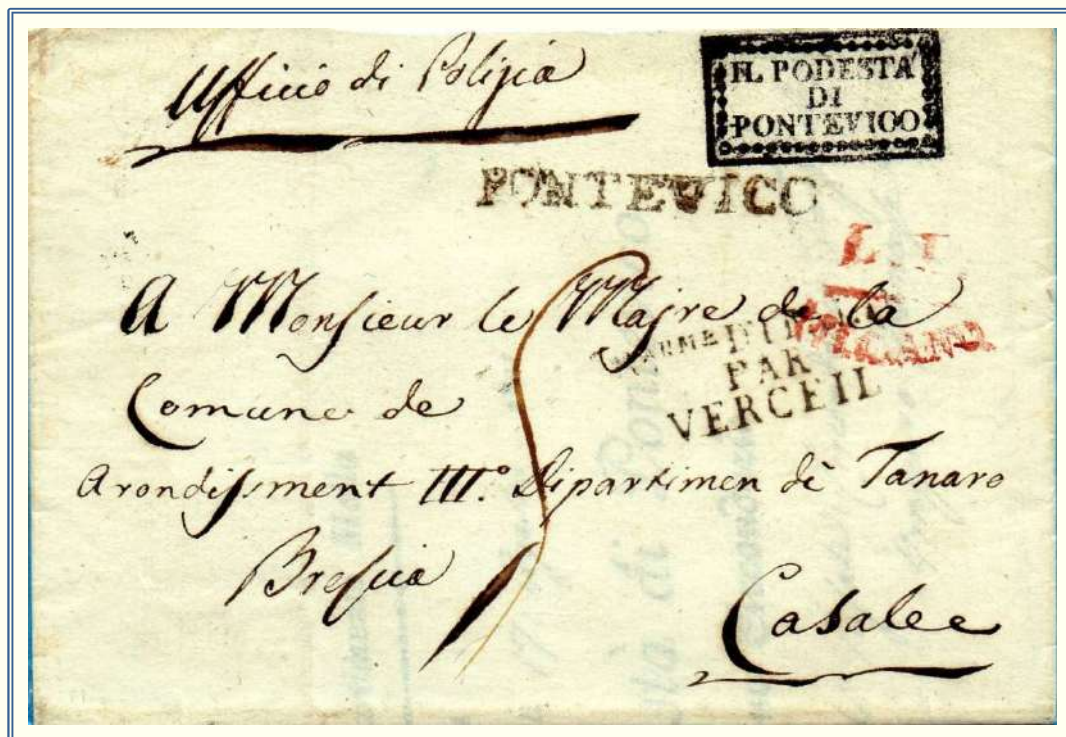 Ufficio di Polizia
IL PODESTA
DI
PONTEVICO
PONTEVICO
L. I
MILANO
A Monsieur le Majre de la
PAR
VERCEIL
Comune de
Arondissment III.º Dipartimen di Tanaro
Brescia
Casalee